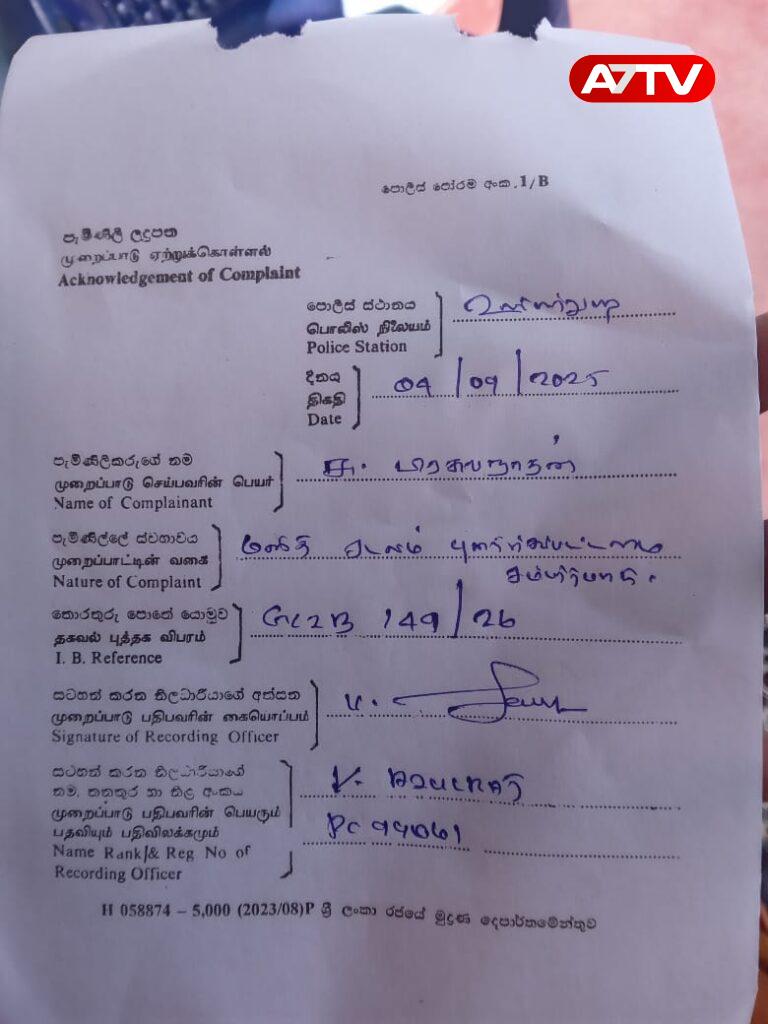 A7TV
පොලිස් පෝරම අංක.1/B
පැමිණිලි ලදුපත
முறைப்பாடு ஏற்றுக்கொள்ளல்
Acknowledgement of Complaint
පොලිස් ස්ථානය
பொலிஸ் நிலையம்
Police Station
දිනය
திகதி
Date
04/09/2025
පැමිණිලිකරුගේ නම
முறைப்பாடு செய்பவரின் பெயர்
Name of Complainant
පැමිණිල්ලේ ස්වභාවය
முறைப்பாட்டின் வகை
Nature of Complaint
மனித
சம்பந்தமாக.
තොරතුරු පොතේ යොමුව
தகவல் புத்தக விபரம்
I. B. Reference
149/26
සටහන් කරන නිලධාරියාගේ අත්සන
முறைப்பாடு பதிபவரின் கையொப்பம்
Signature of Recording Officer
සටහන් කරන නිලධාරියාගේ
නම, තනතුර හා නිල අංකය
முறைப்பாடு பதிபவரின் பெயரும்
பதவியும் பதிவிலக்கமும்
Name Rank & Reg No of
Recording Officer
PC
H 058874 – 5,000 (2023/08)P ශ්‍රී ලංකා රජයේ මුද්‍රණ දෙපාර්තමේන්තුව